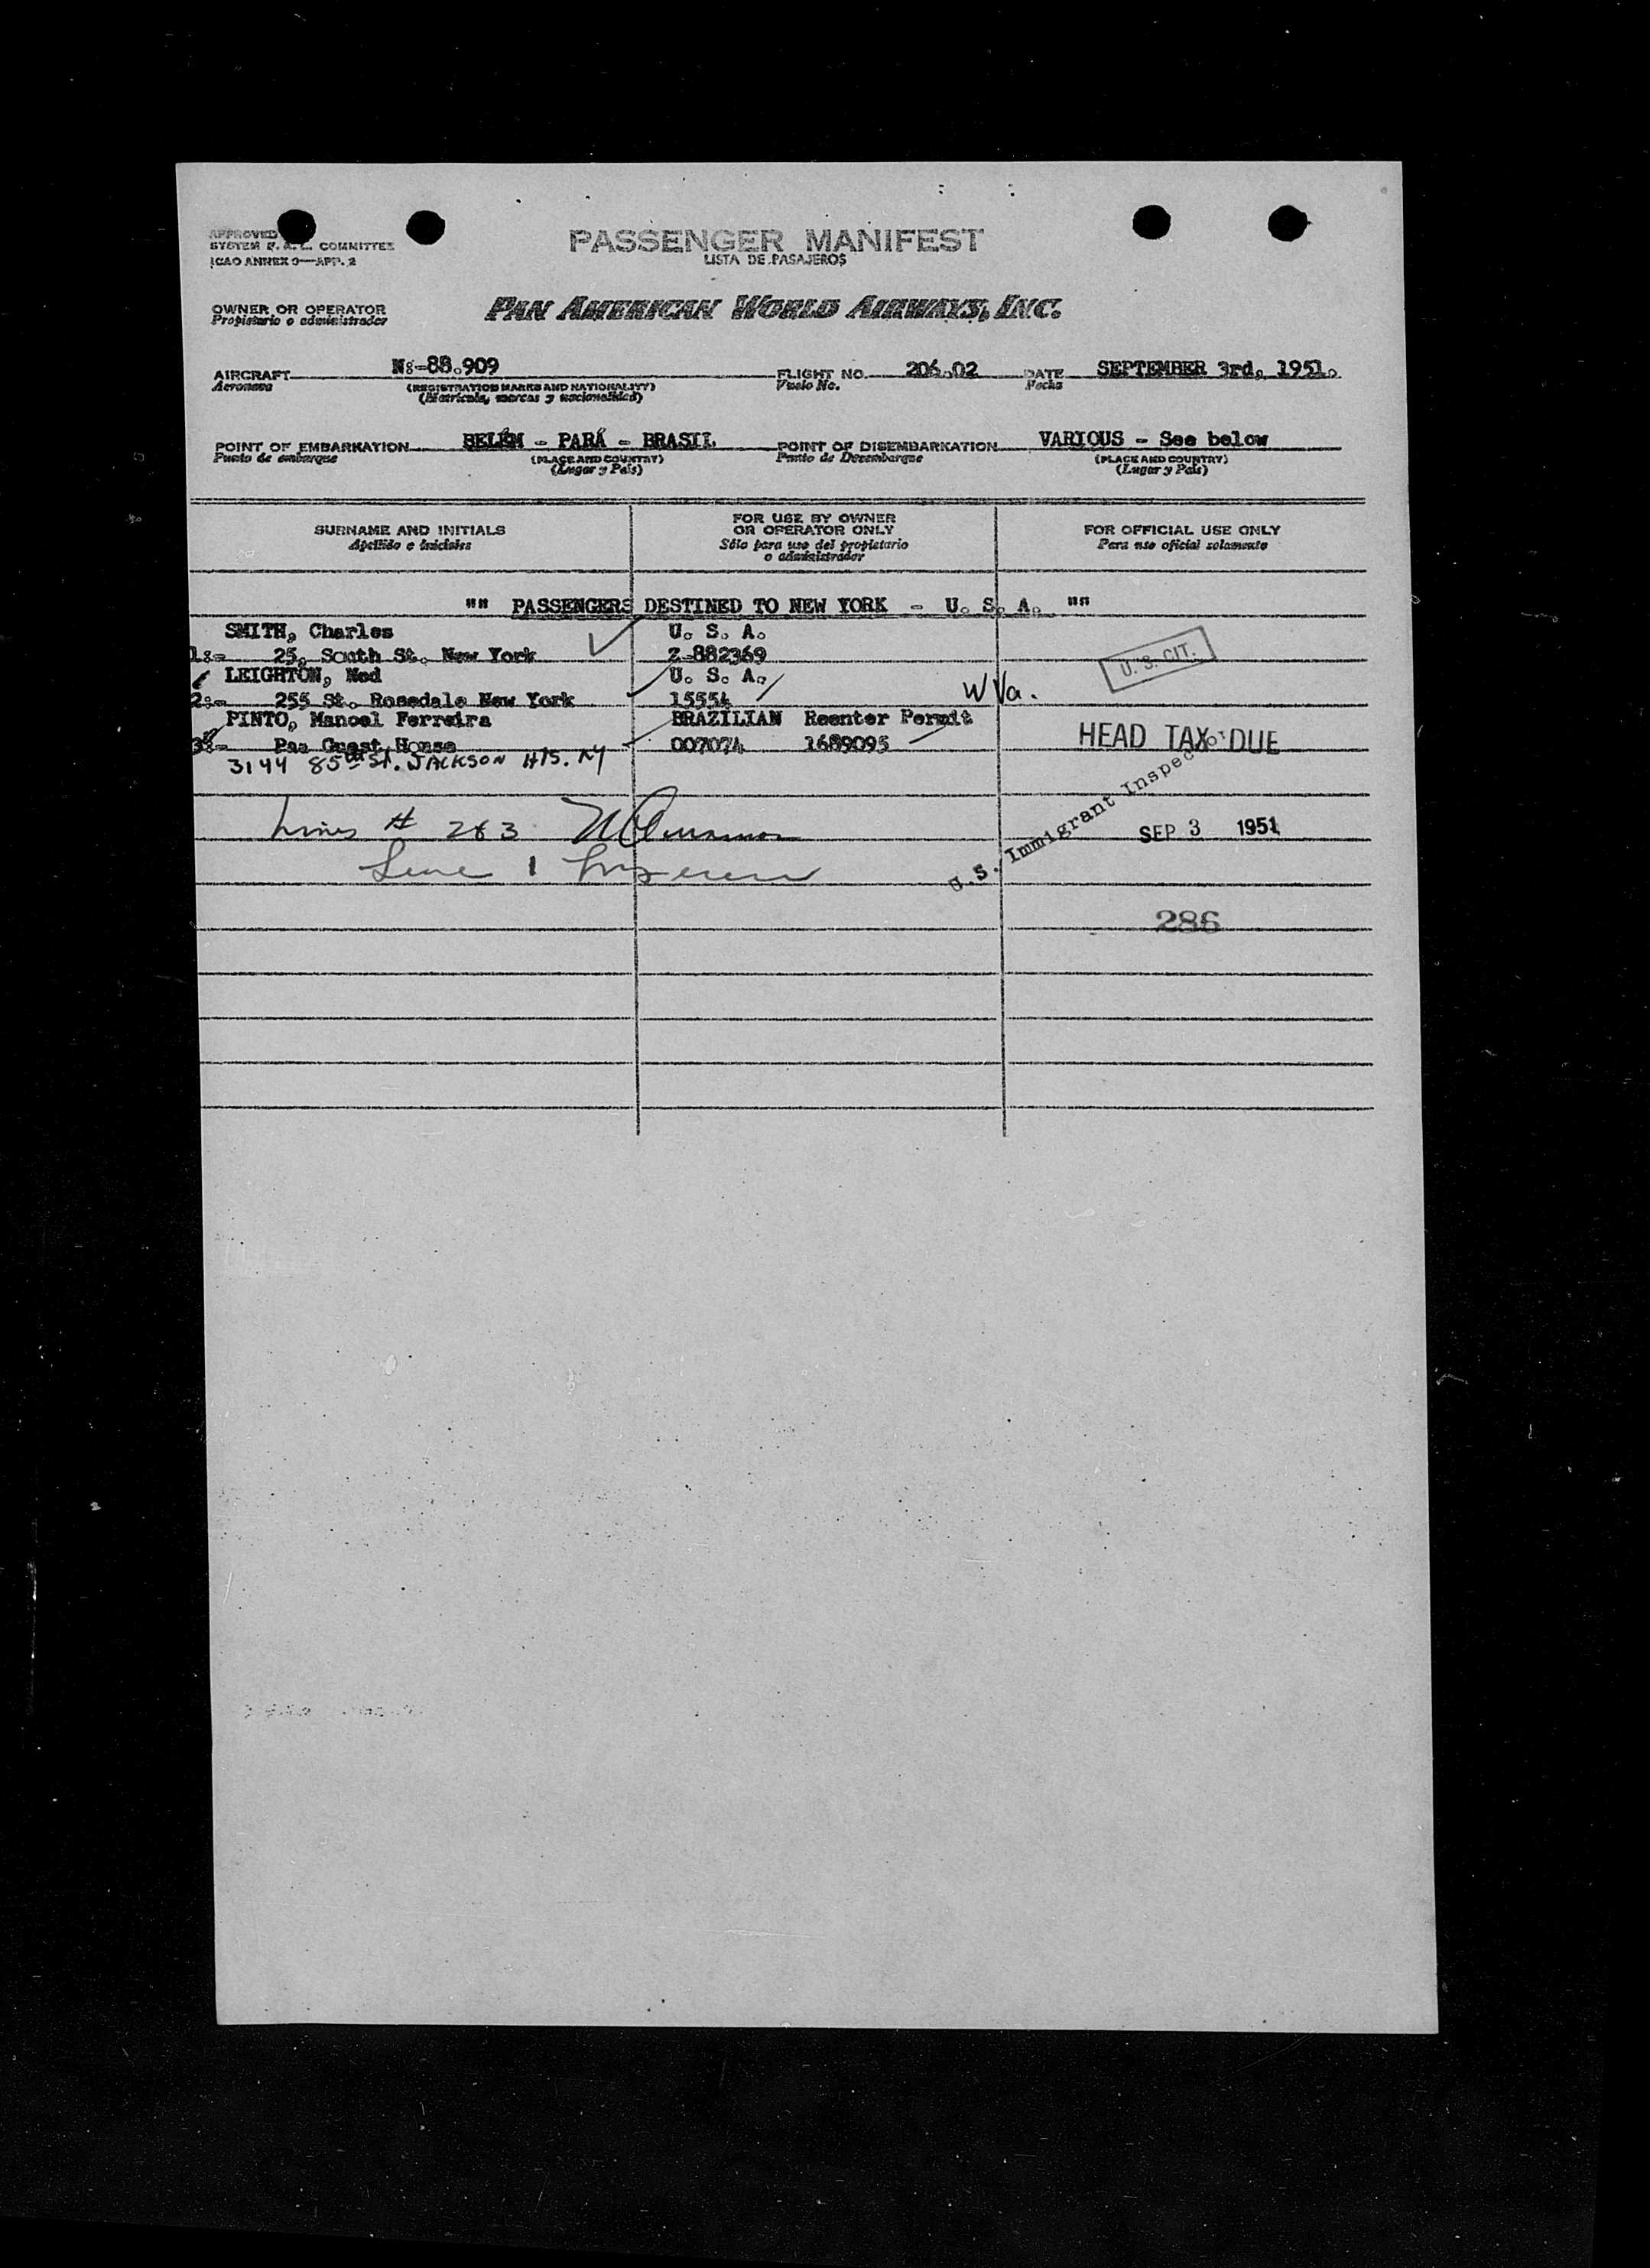 APPROVED
SYSTEM F. A. L. COMMITTEE
ICAO ANNEX 9—APP. 2
PASSENGER MANIFEST
LISTA DE PASAJEROS
OWNER OR OPERATOR
Propietario o administrador
PAN AMERICAN WORLD AIRWAYS, INC.
AIRCRAFT N:-88.909 FLIGHT NO. 206.02 DATE SEPTEMBER 3rd, 1951.
Aeronave (REGISTRATION MARKS AND NATIONALITY) Vuelo No. Fecha
(Matrícula, marcas y nacionalidad)
POINT OF EMBARKATION BELÉM - PARÁ - BRASIL POINT OF DISEMBARKATION VARIOUS - See below
Punto de embarque (PLACE AND COUNTRY) Punto de Desembarque (PLACE AND COUNTRY)
(Lugar y País) (Lugar y País)
SURNAME AND INITIALS
Apellido e iniciales
FOR USE BY OWNER
OR OPERATOR ONLY
Sólo para uso del propietario
o administrador
FOR OFFICIAL USE ONLY
Para uso oficial solamente
"" PASSENGERS DESTINED TO NEW YORK - U. S. A. ""
SMITH, Charles U. S. A.
1:- 25, South St. New York Z-882369
U. S. CIT.
LEIGHTON, Ned U. S. A.
2:- 255 St. Rosedale New York 15554 W Va.
PINTO, Manoel Ferreira BRAZILIAN Reenter Permit
3:- Paa Guest House 007074 1689095
HEAD TAX DUE
3144 85th St. JACKSON HTS. NY
U.S. Immigrant Inspector
Lines # 2&3
SEP 3 1951
Line 1
286